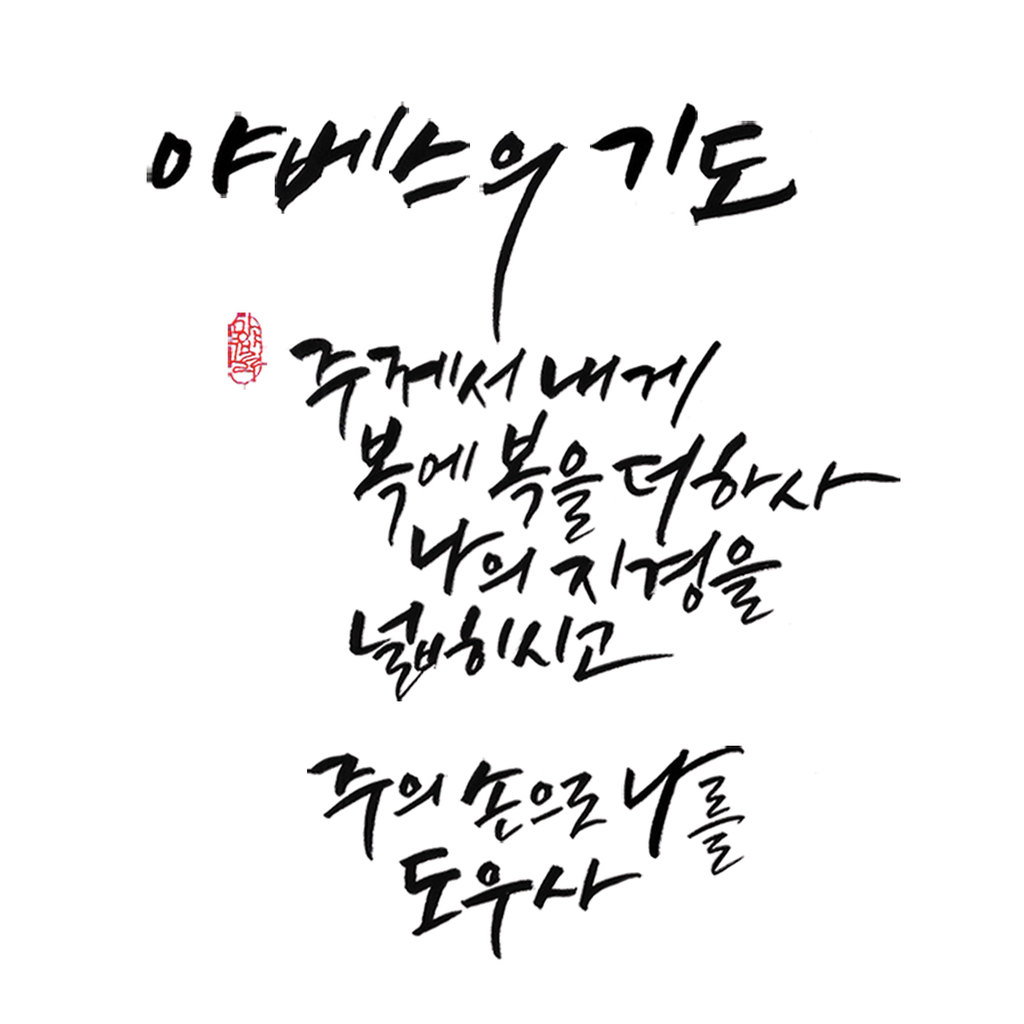 야베스의 기도
주께서 내게
복에 복을 더하사
나의 지경을
넓히시고
주의 손으로 나를
도우사